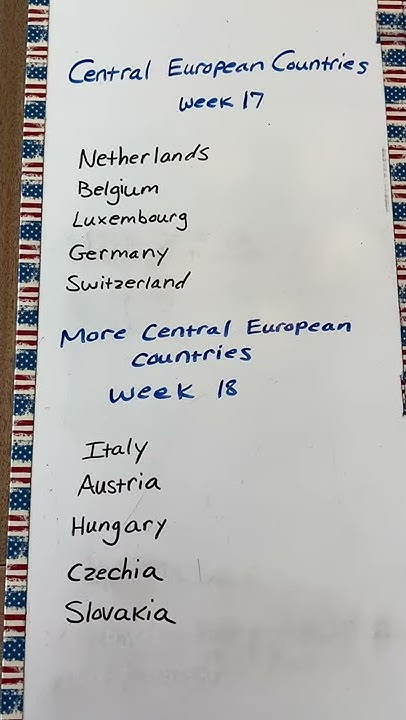 Central European Countries
Week 17
Netherlands
Belgium
Luxembourg
Germany
Switzerland
More Central European
Countries
Week 18
Italy
Austria
Hungary
Czechia
Slovakia